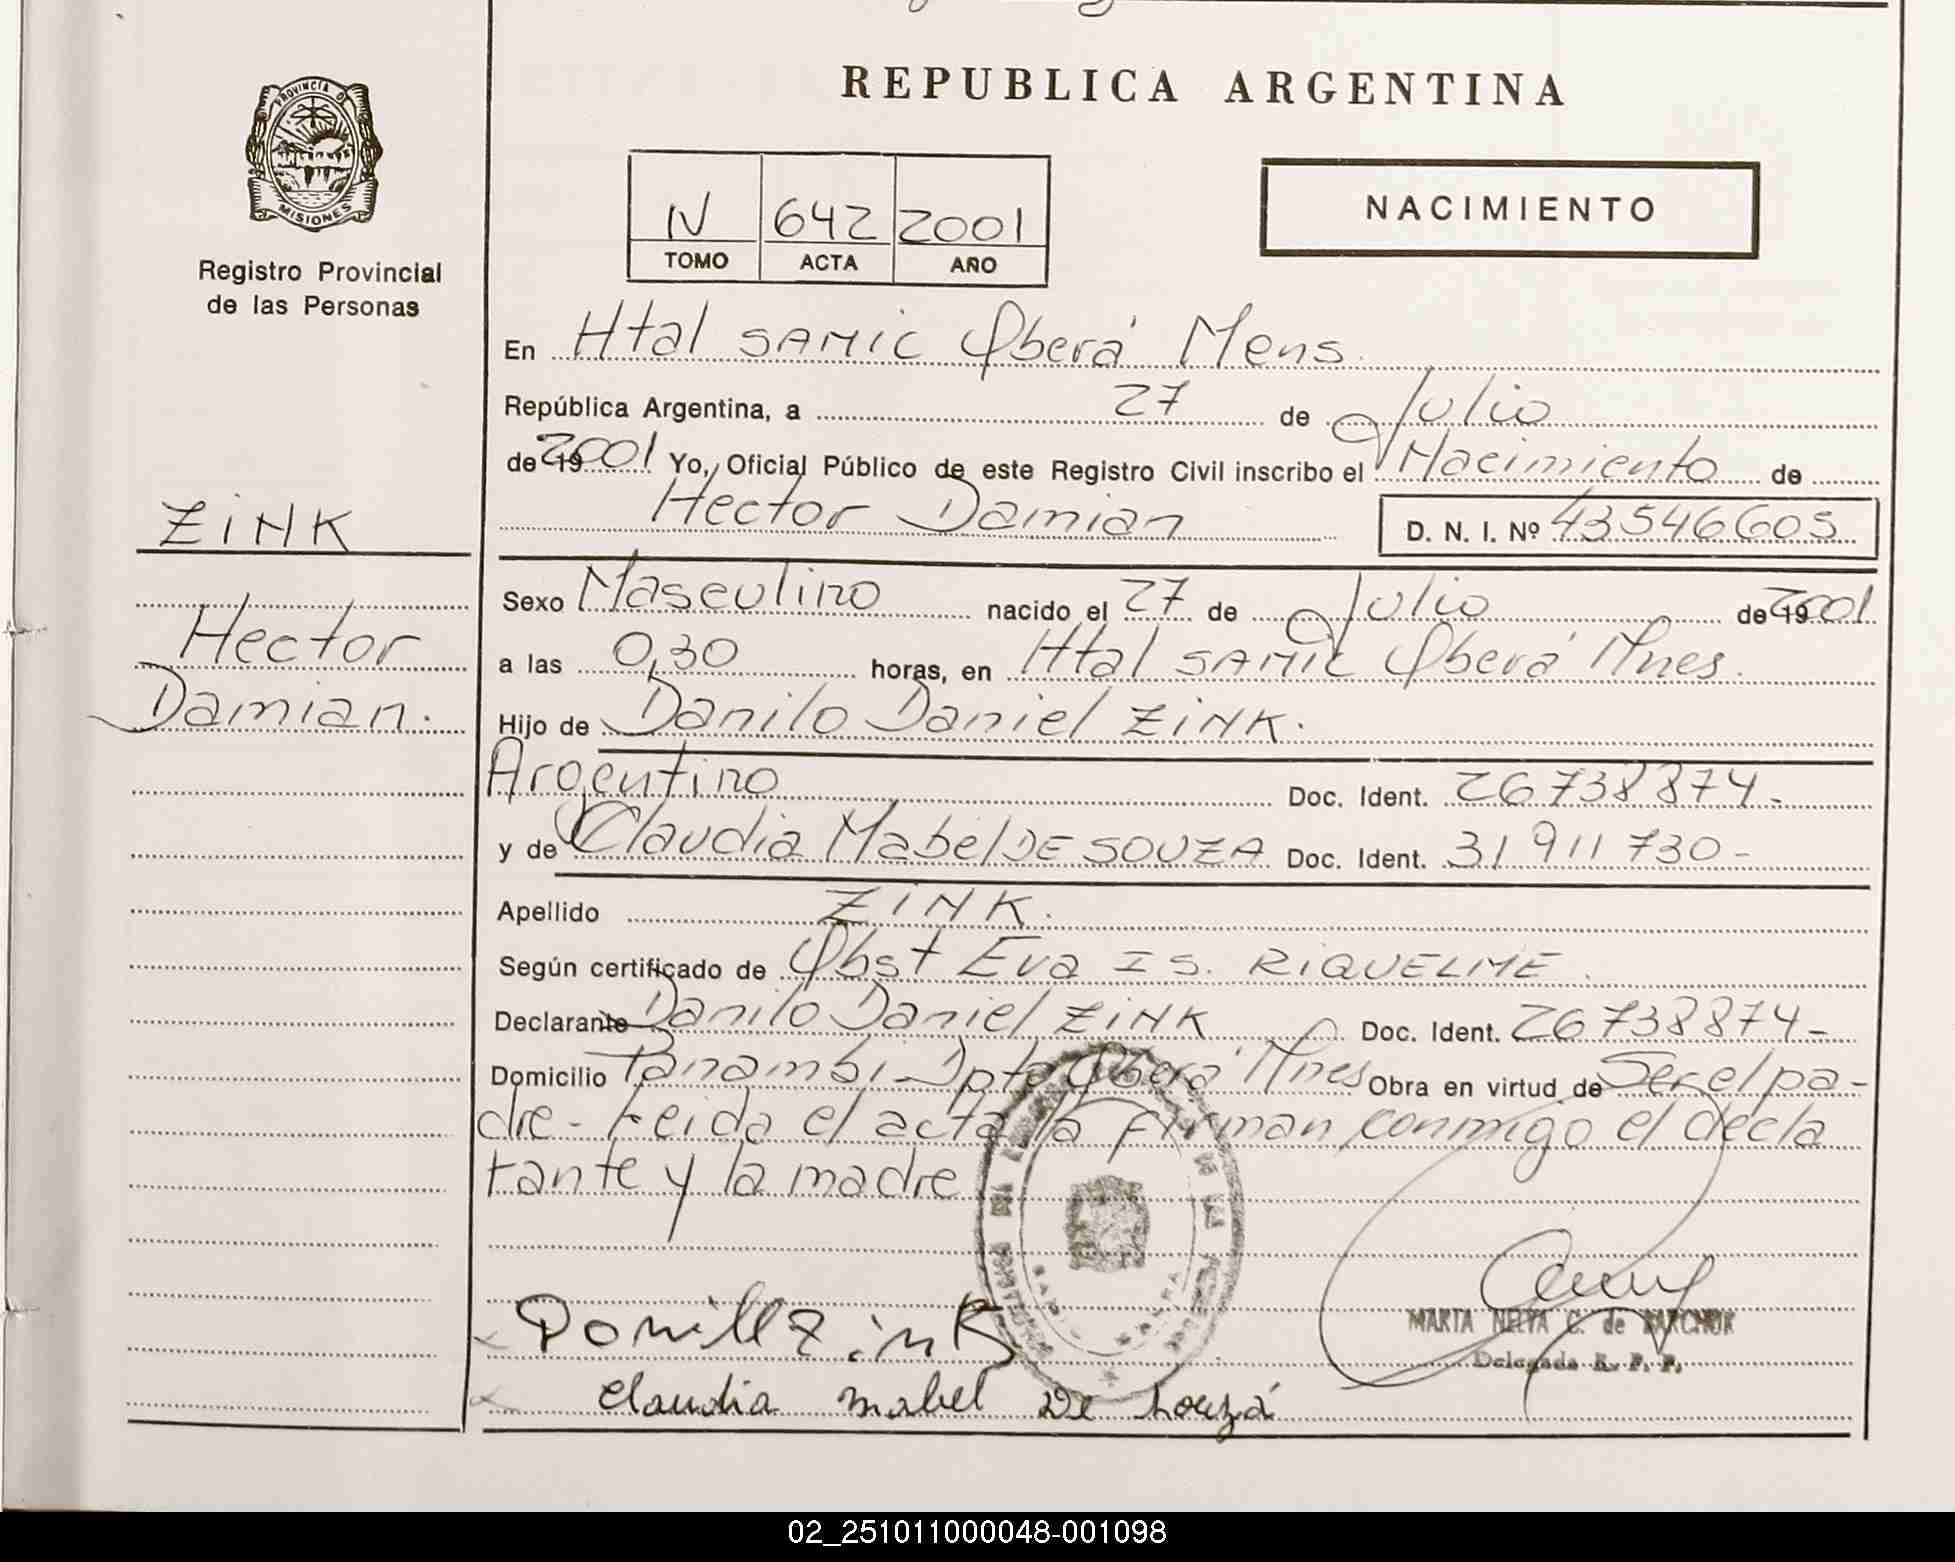 REPUBLICA ARGENTINA
PROVINCIA D
MISIONES
Registro Provincial
de las Personas
IV 642 2001
TOMO ACTA AÑO
NACIMIENTO
En Htal SAMIC Oberá Mens.
República Argentina, a 27 de Julio
de 19 2001 Yo, Oficial Público de este Registro Civil inscribo el Nacimiento de
Hector Damian D. N. I. Nº 43546605
ZiNK
Hector
Damian.
Sexo Masculino nacido el 27 de Julio de 19 2001
a las 0,30 horas, en Htal SAMIC Oberá Mnes.
Hijo de Danilo Daniel ZiNK.
Argentino Doc. Ident. 26738874-
y de Claudia Mabel DE SOUZA Doc. Ident. 31911730-
Apellido ZiNK.
Según certificado de Obst Eva Is. RiQUELME.
Declarante Danilo Daniel ZiNK Doc. Ident. 26738874-
Domicilio Panambi-Dpto Oberá Mnes Obra en virtud de Ser el pa-
dre- Leida el acta la firman conmigo el decla
rante y la madre
Danill Zink
MARTA NELYA C. de
Delegada R. P. P.
Claudia mabel De Souzá
02_251011000048-001098